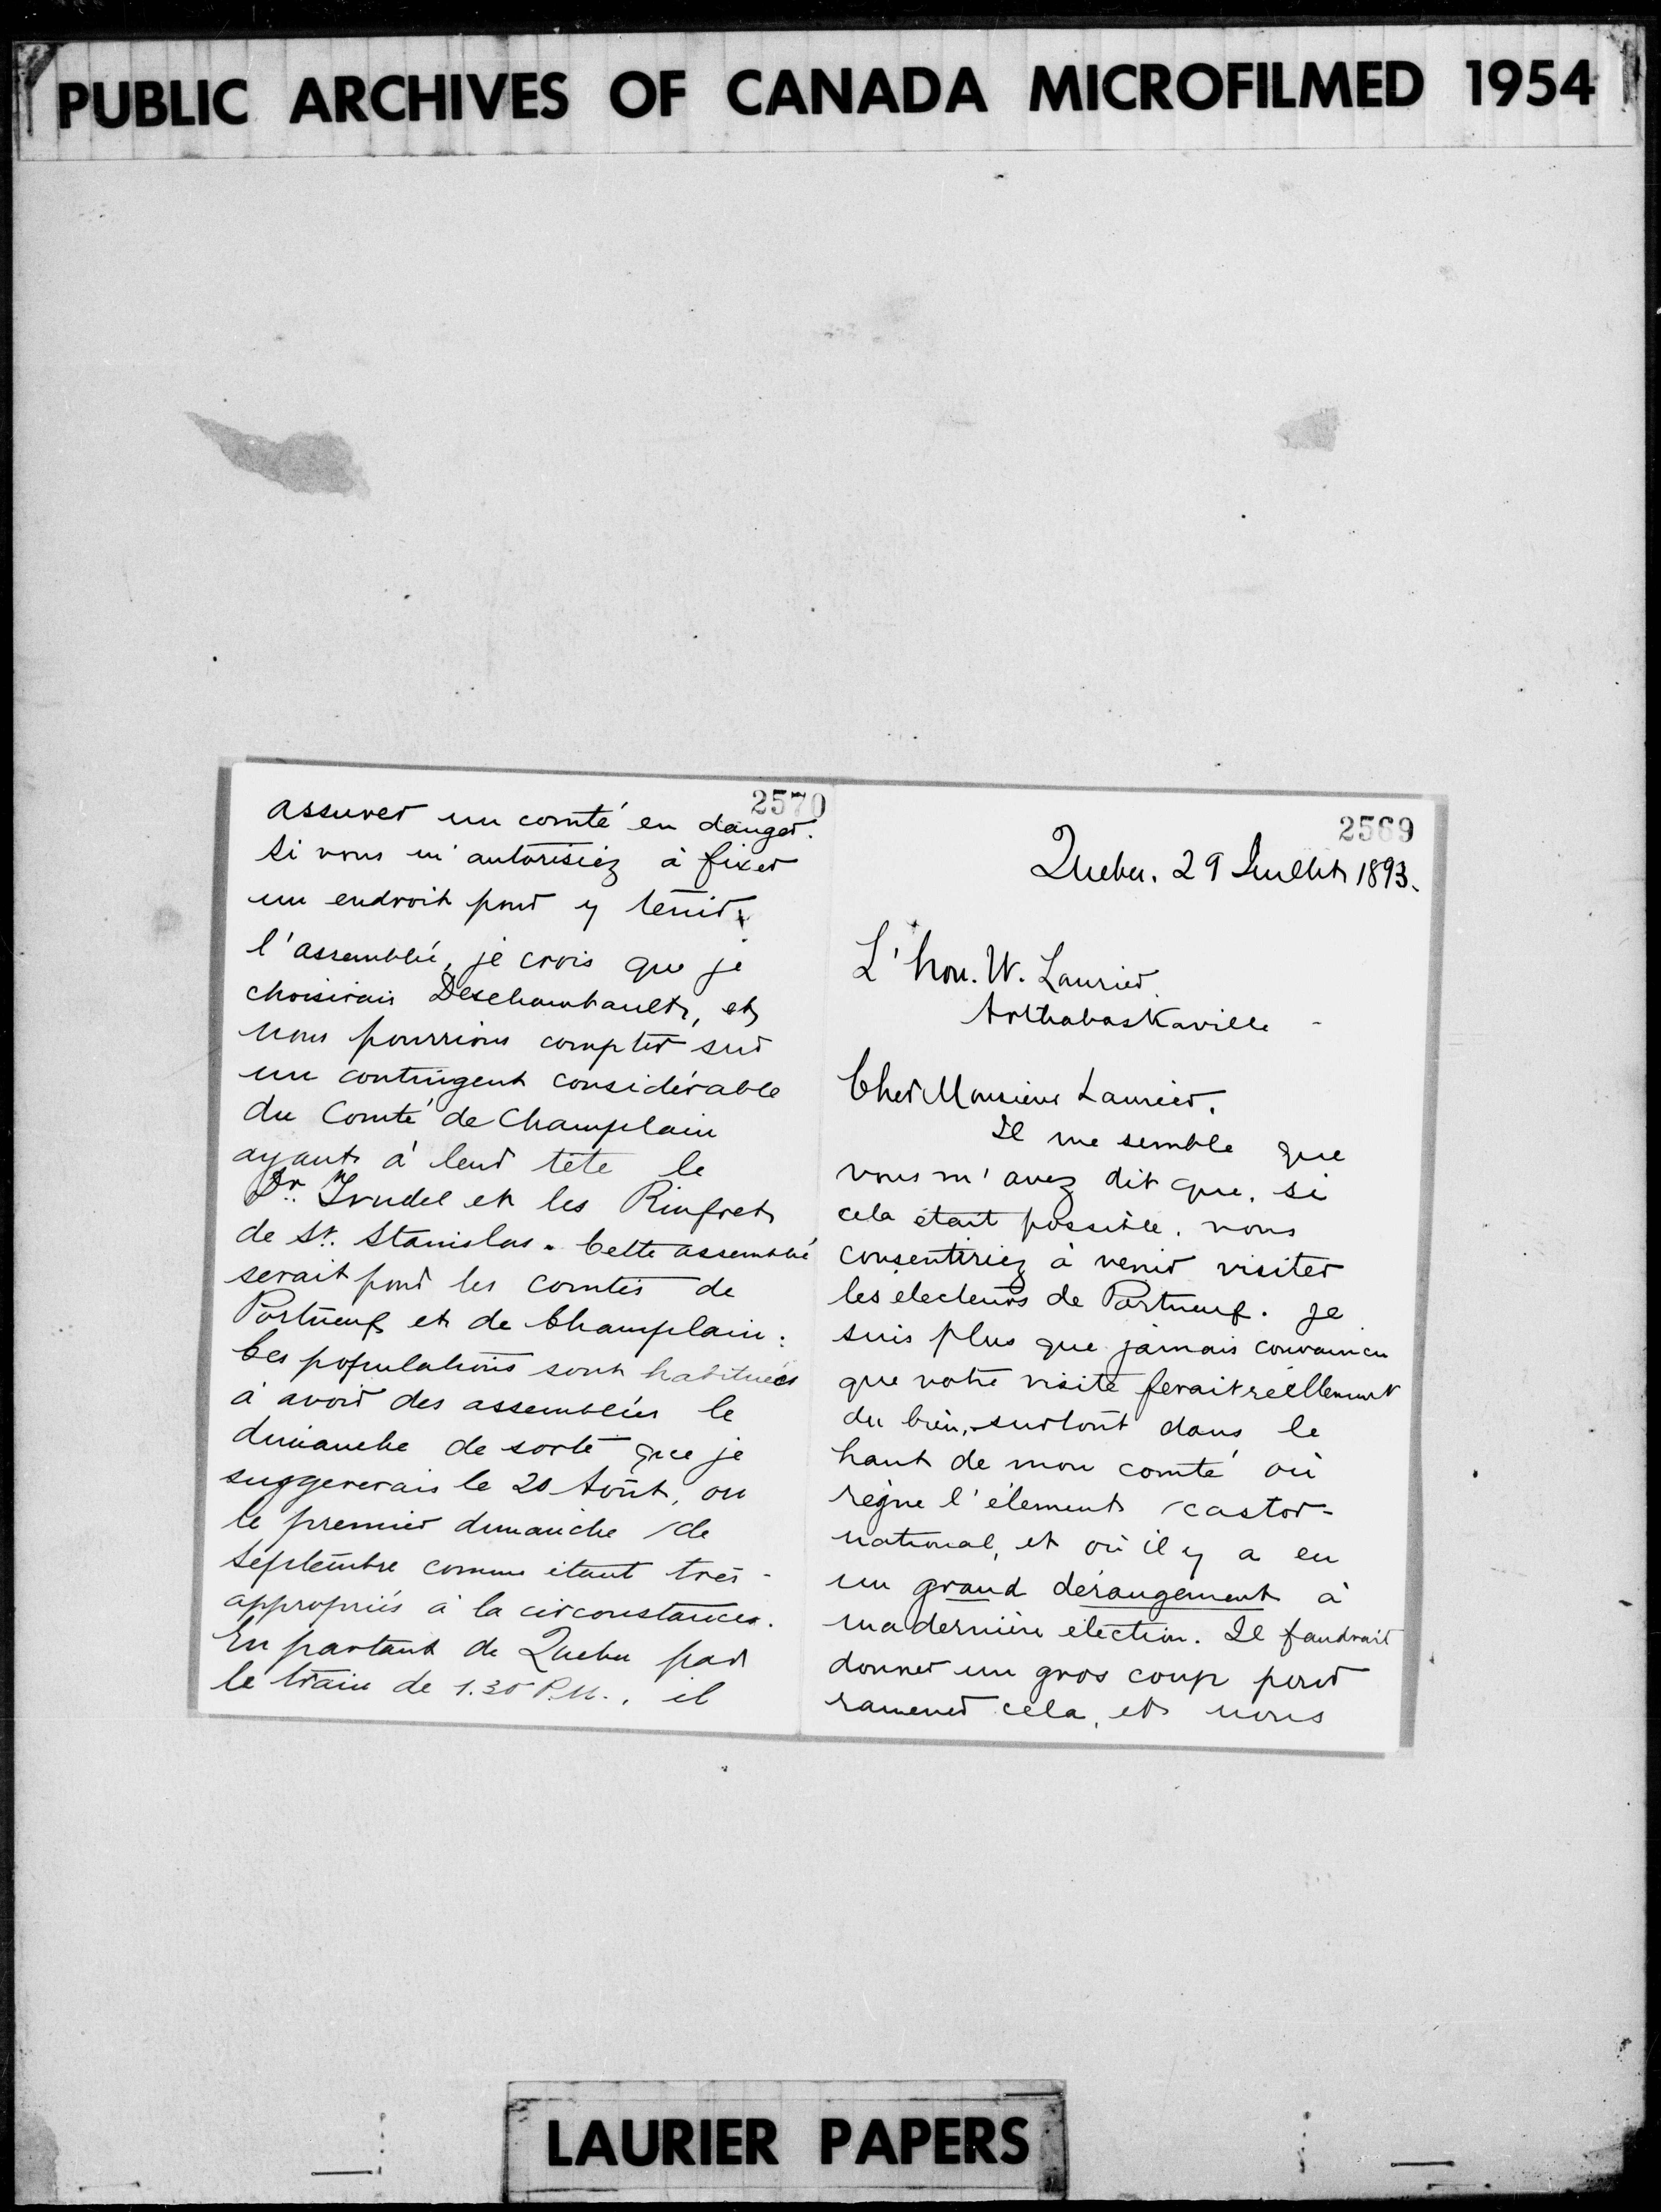 PUBLIC ARCHIVES OF CANADA MICROFILMED 1954
2569
Quebec. 29 Juillet 1893.
L'hon. W. Laurier
Arthabaskaville -
Cher Monsieur Laurier,
Il me semble que
vous m'avez dit que, si
cela était possible, vous
consentiriez à venir visiter
les électeurs de Portneuf. Je
suis plus que jamais convaincu
que votre visite ferait réellement
du bien, surtout dans le
haut de mon comté où
règne l'élement castor-
national, et où il y a eu
un grand dérangement à
ma dernière élection. Il faudrait
donner un gros coup pour
ramener cela, et nous
2570
assurer un comté en danger.
Si vous m'autorisiez à fixer
un endroit pour y tenir
l'assemblée, je crois que je
choisirais Deschambault, et
nous pourrions compter sur
un contingent considérable
du Comté de Champlain
ayant à leur tête le
Dr. Trudel et les Rinfret
de St. Stanislas. Cette assemblée
serait pour les comtés de
Portneuf et de Champlain.
Ces populations sont habituées
à avoir des assemblées le
dimanche de sorte que je
suggererais le 20 Août, ou
le premier dimanche de
Septembre comme étant très-
appropriés à la circonstances.
En partant de Quebec par
le train de 1.30 P.M., il
LAURIER PAPERS